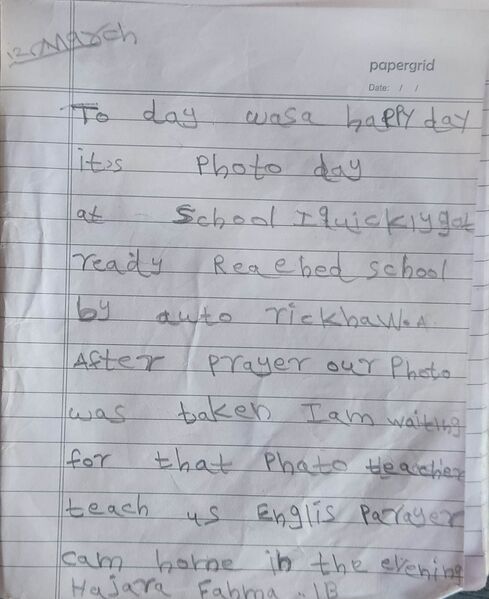 12 March
papergrid
Date: / /
To day wasa happy day
it's Photo day
at School I quickly got
ready Reaebed school
by auto rickhaw.A
After prayer our Photo
was taken I am waiting
for that Phato teacher
teach us Englis Parayer
cam home in the evening
Hajara Fahma . 1B